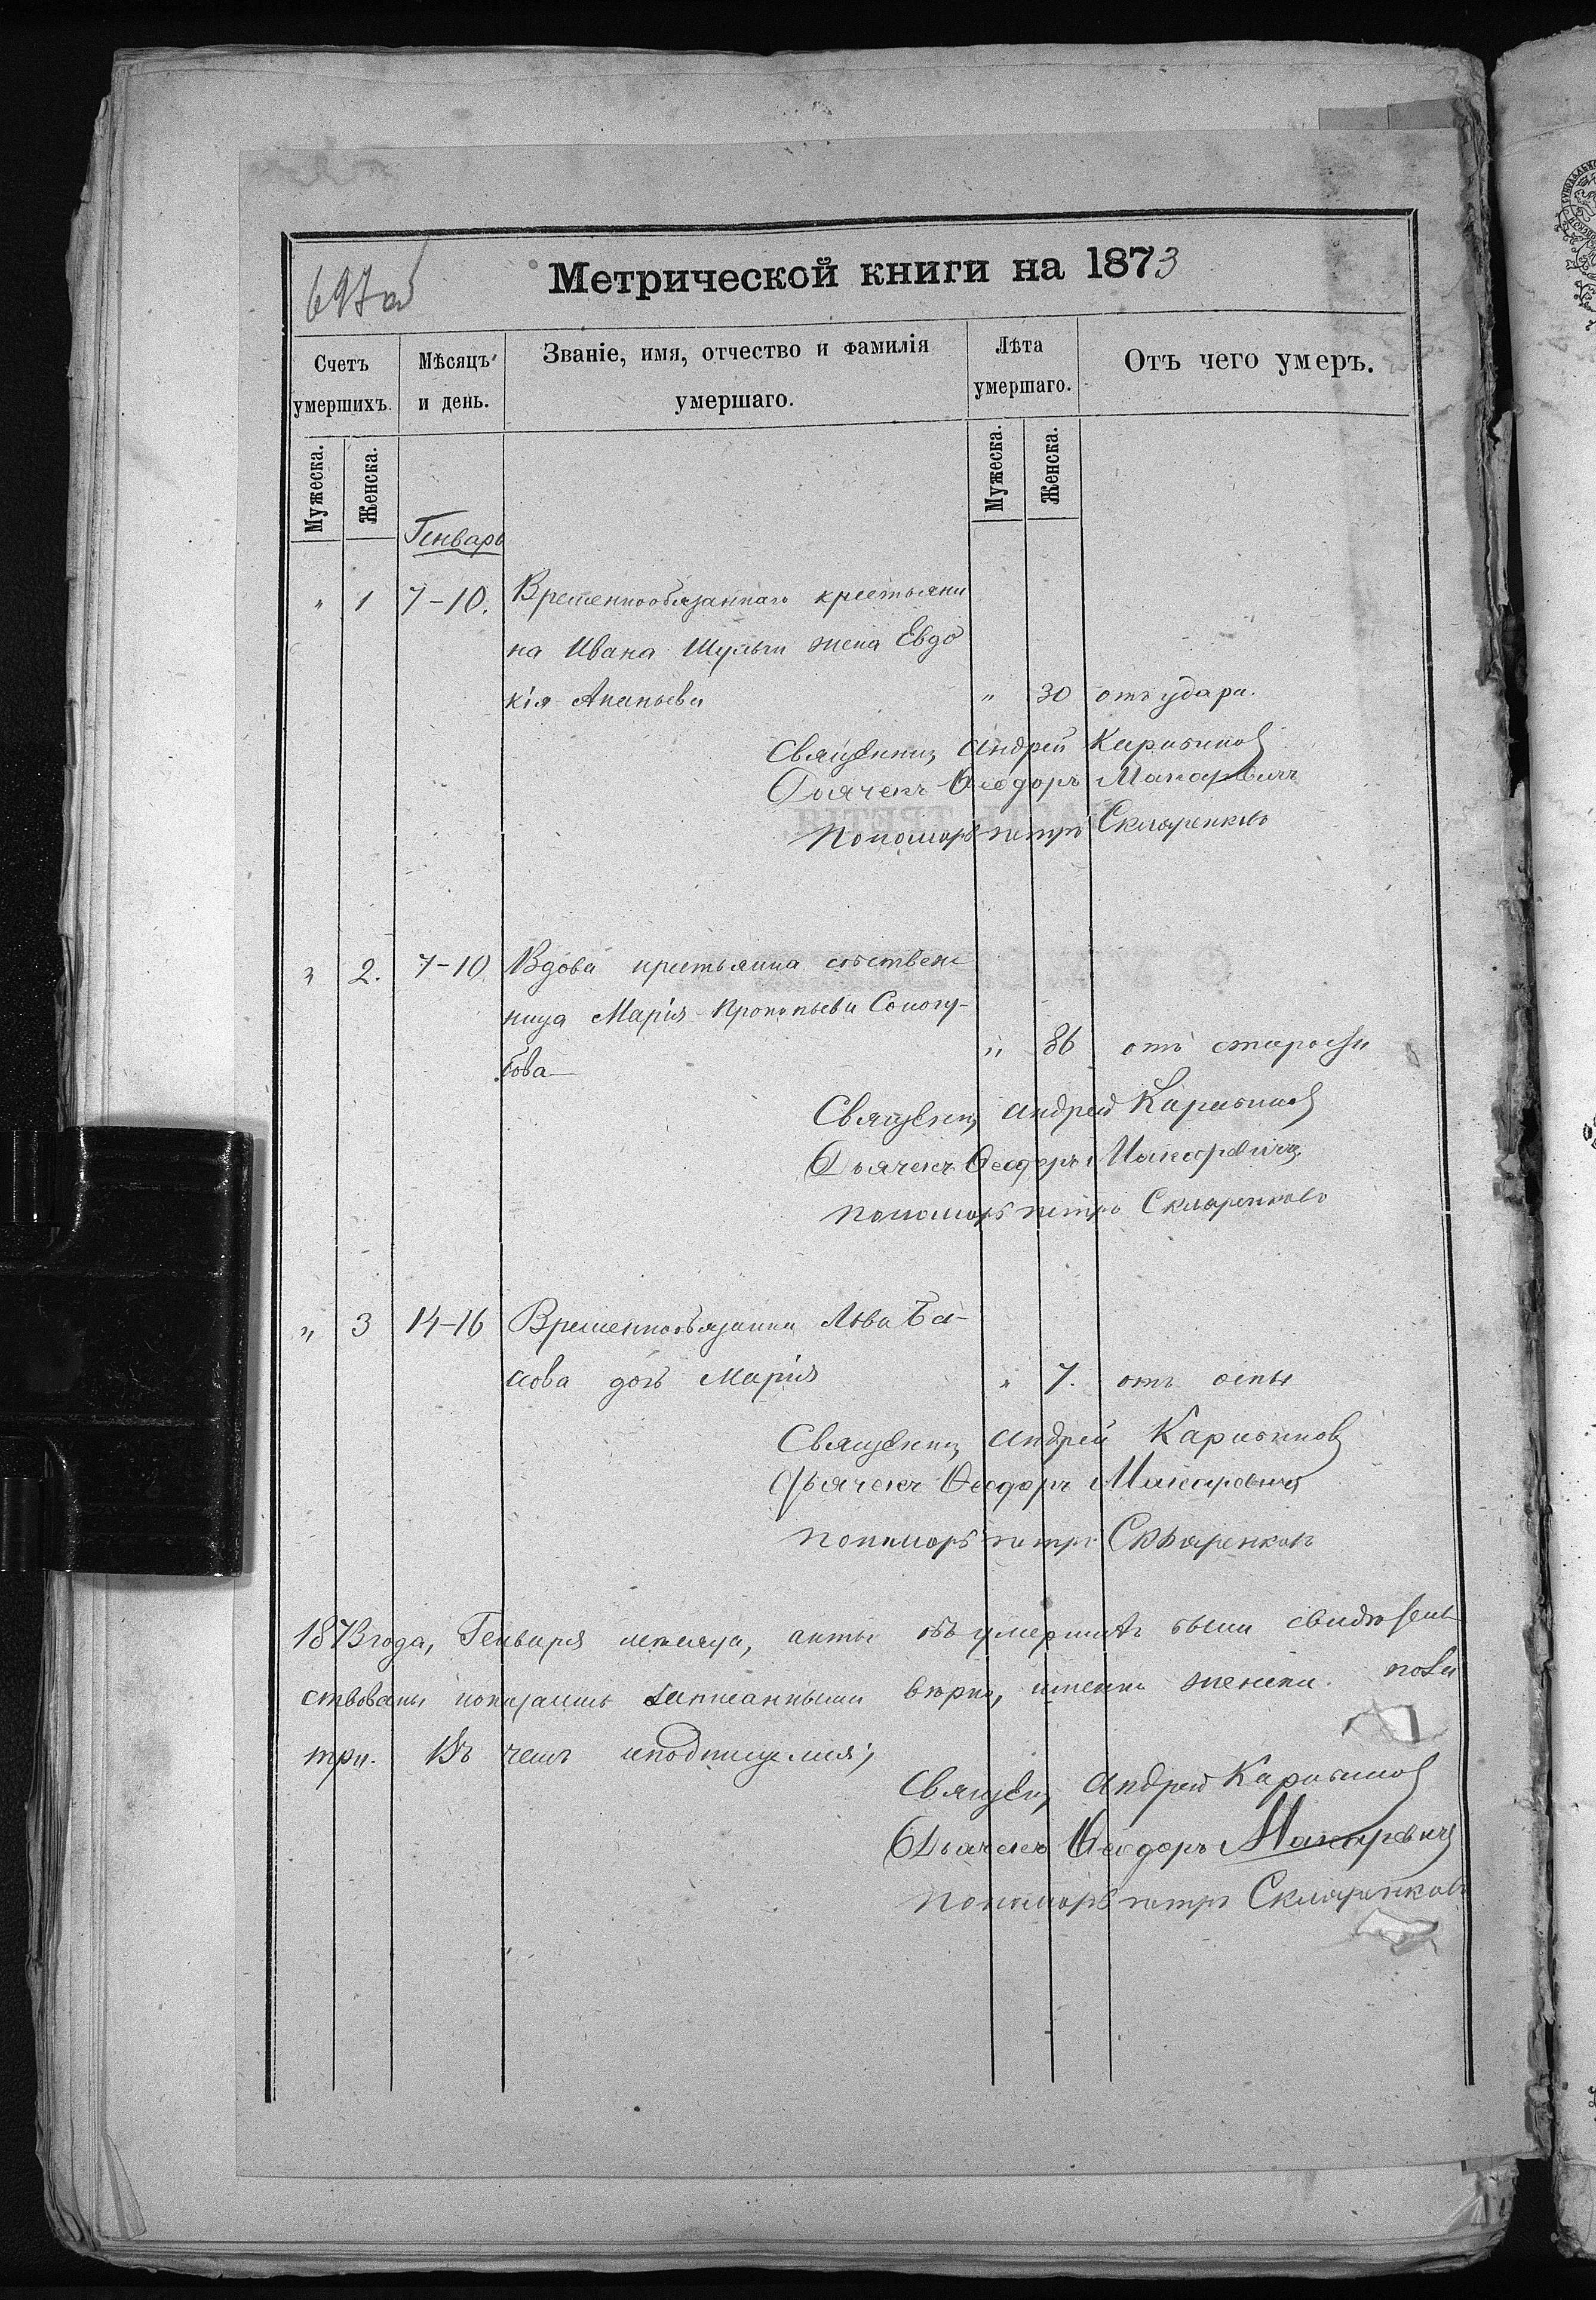 697об
Метрической книги на 1873
Счетъ умершихъ.
Мѣсяцъ и день.
Званіе, имя, отчество и фамилія умершаго.
Лѣта умершаго.
Отъ чего умеръ.
Мужеска.
Женска.
Мужеска.
Женска.
Генварь
" 1 7-10. Временнообязаннаго крестьяни
на Ивана Шульги жена Евдо
кія Ананьева " 30 отъ удара.
Священникъ Андрей
Дьячекъ Ѳеодоръ Макаревичъ
Пономарь Петръ Скляренковъ
" 2. 7-10 Вдова крестьянка собствен
ница Марія Прокопьева Сологу-
бова " 86 отъ старости
Священникъ Андрей
Дьячекъ Ѳеодоръ Макаревичъ
Пономарь Петръ Скляренковъ
" 3 14-16 Льва Ба-
дочь Марія " 7. отъ оспы
Священникъ Андрей
Дьячекъ Ѳеодоръ Макаревичъ
Пономарь Петръ Скляренковъ
1873 года, Генваря мѣсяца, акты объ умершихъ были свидѣтель
ствованы показались записанными вѣрно, именно женска пола
три. Въ чемъ и подписуемся;
Священ Андрей
Дьячекъ Ѳеодоръ Макаревичъ
Пономарь Петръ Скляренковъ